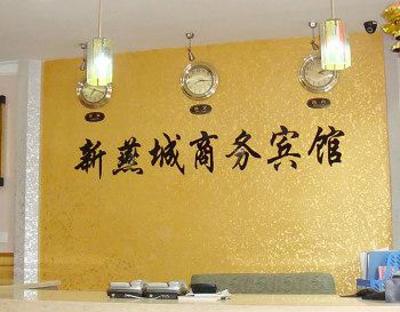 新燕城商务宾馆